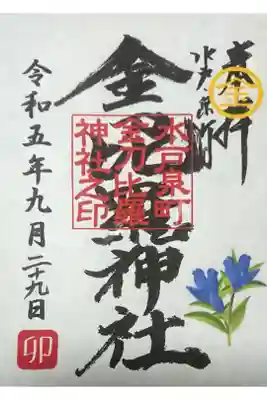 金
水戸泉町
金刀比羅神社
水戸泉町
金刀比羅
神社之印
令和五年九月二十九日
卯